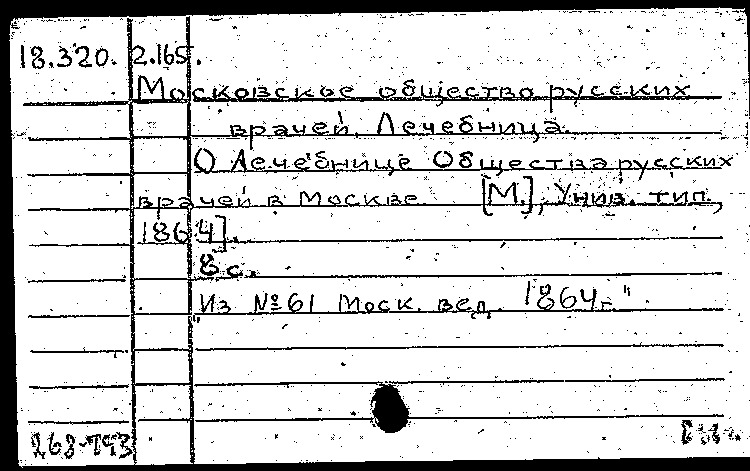 18.320. 2.165.
Московское общество русских
врачей. Лечебница.
О Лечебнице Общества русских
врачей в Москве [М.], Унив. тип.,
1864].
8 с.
"Из № 61 Моск. вед. 1864 г."
268-793